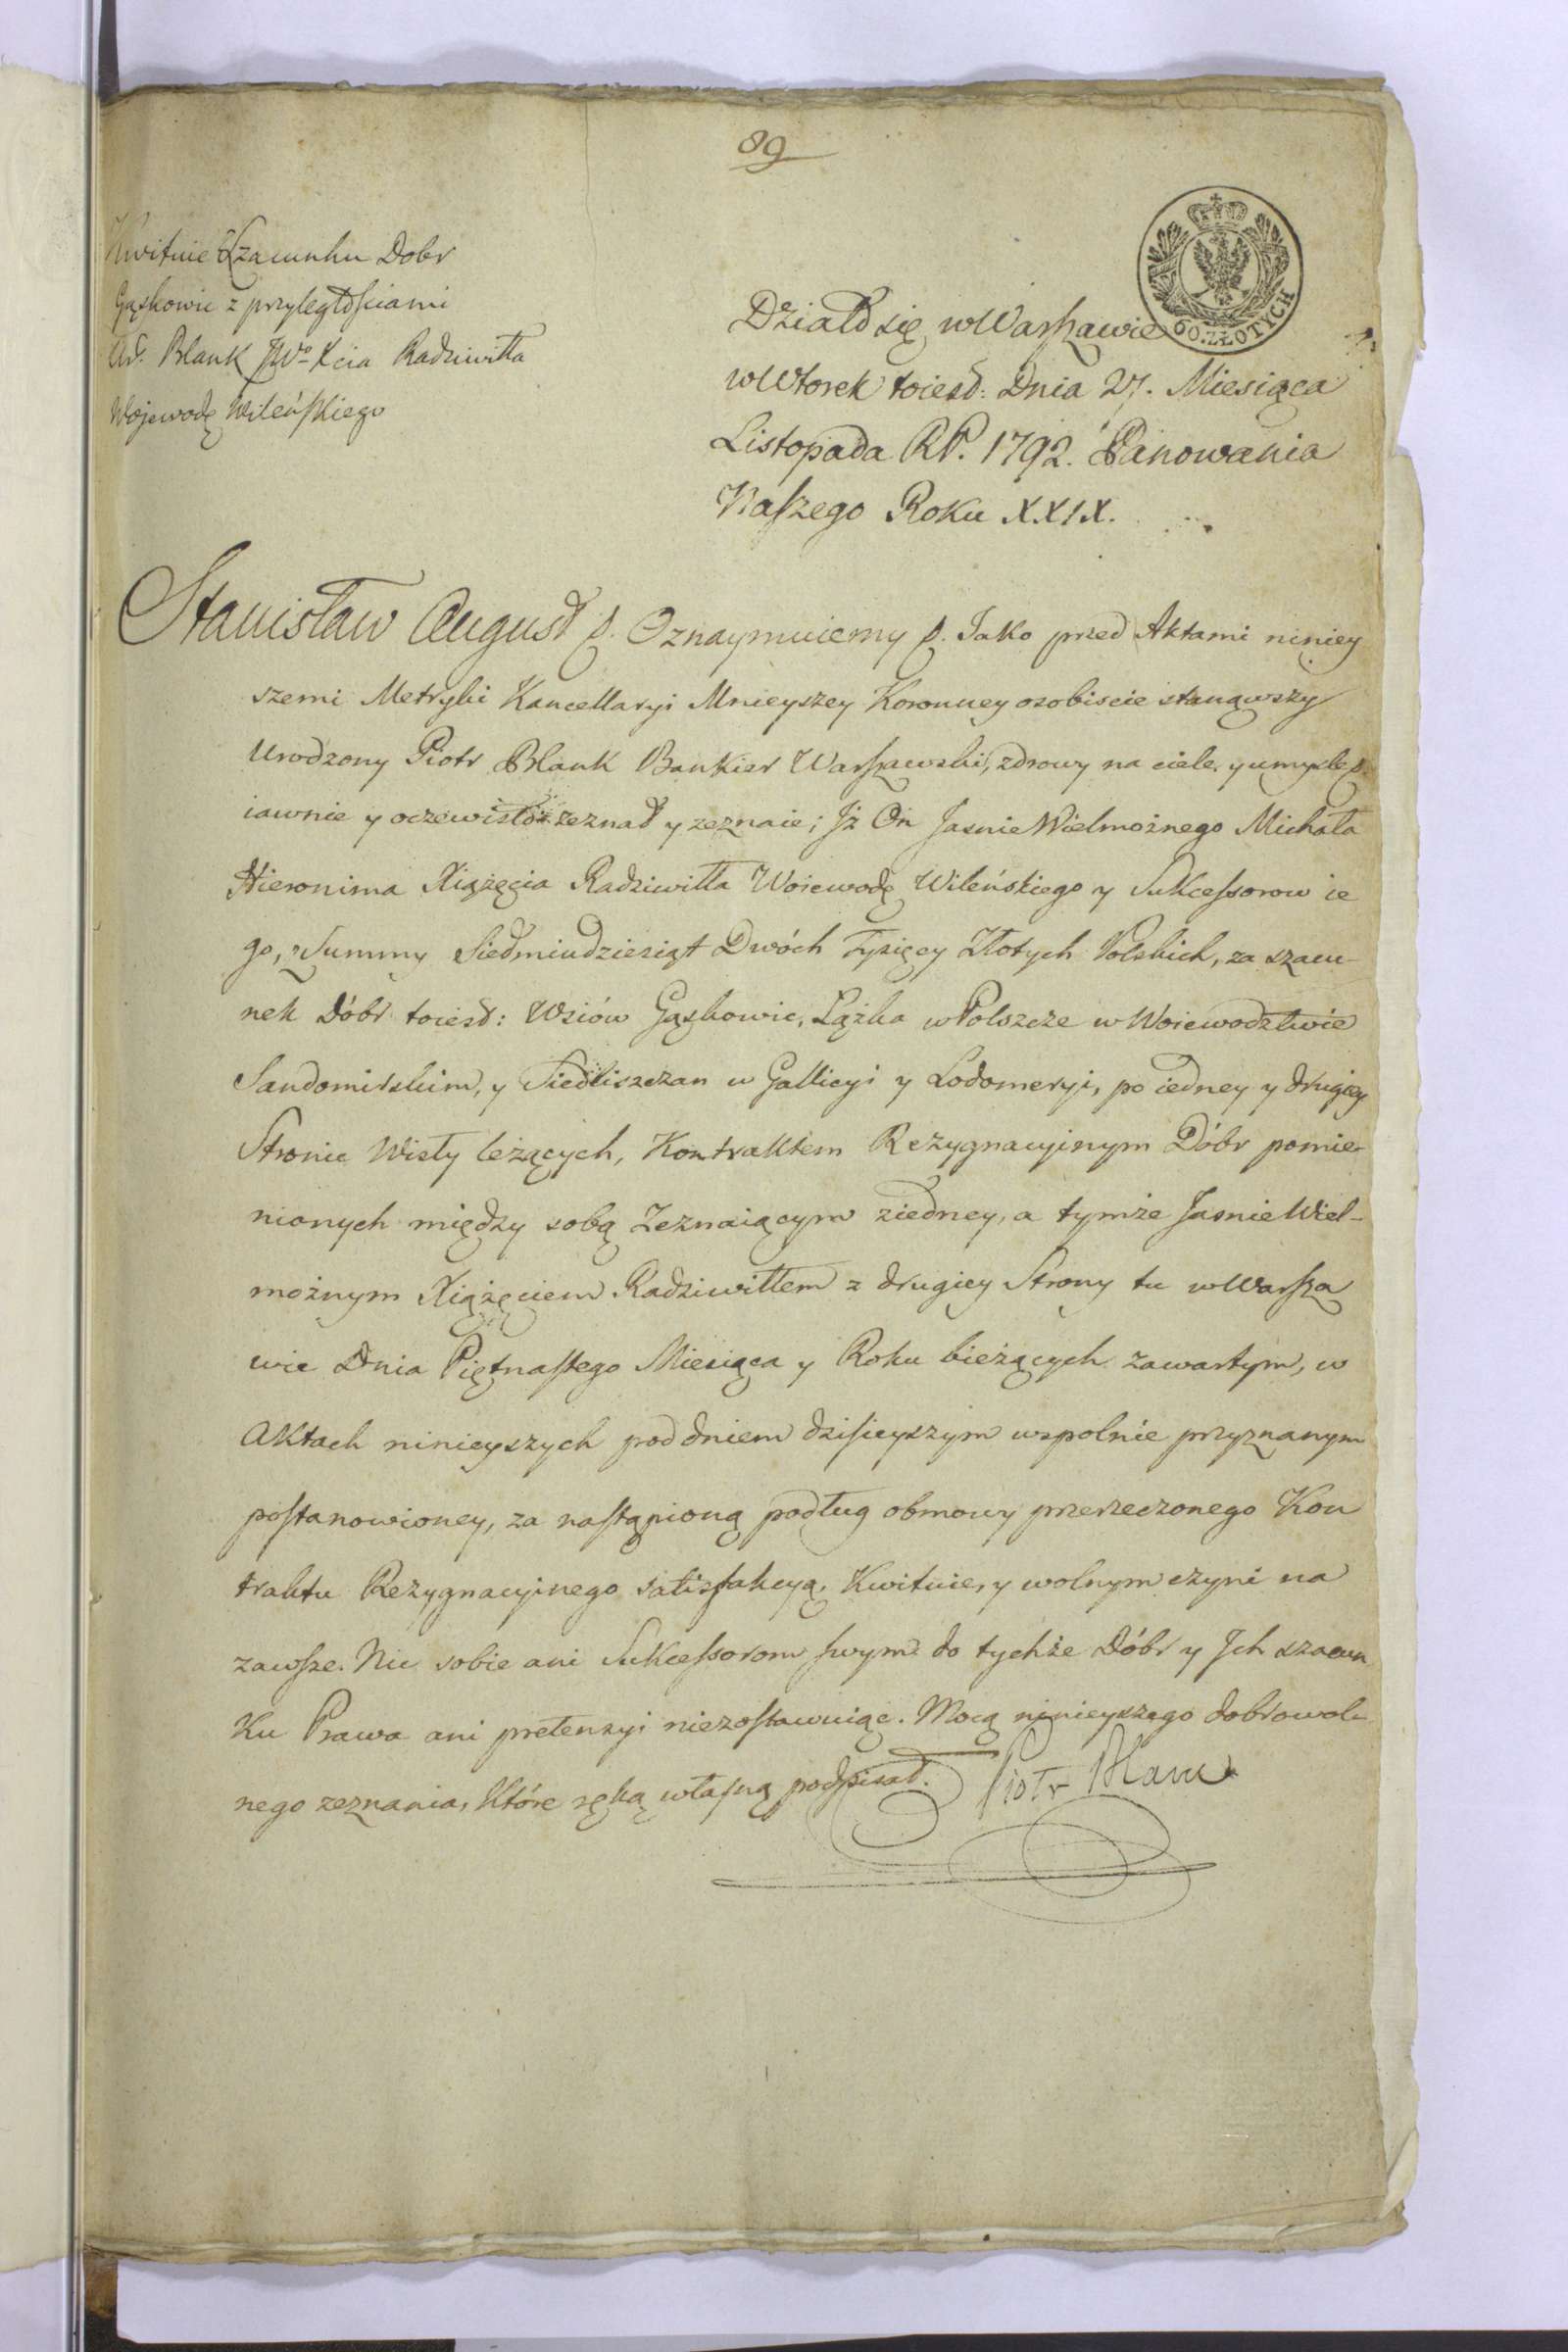 89
Kwituie Szacunku Dobr
Gąskowic z przyległościami
Ur. Blank JWo Xcia Radziwiłła
Wojewodę Wileńskiego
60. ZŁOTYCH
Działo się w Warszawie
w Wtorek toiest: Dnia 27. Miesiąca
Listopada RP. 1792. Panowania
Naszego Roku XXIX.
Stanisław August &. Oznaymuiemy &. Jako przed Aktami niniey
szemi Metryki Kancellaryi Mnieyszey Koronney osobiscie stanąwszy
Urodzony Piotr Blank Bankier Warszawski, zdrowy na ciele y umysle &.
iawnie y oczewisto zeznał y zeznaie; Jż On Jasnie Wielmożnego Michała
Hieronima Xiążęcia Radziwiłła Woiewodę Wileńskiego y Sukcessorow ie
go, z Summy Siedmiudziesiąt Dwóch Tysięcy Złotych Polskich, za szacu-
nek Dóbr toiest: Wsiów Gąskowic, Lążka w Polszcze w Woiewodztwie
Sandomirskim, y Siedliszczan w Gallicyi y Lodomeryi, po iedney y drugiey
Stronie Wisły leżących, Kontraktem Rezygnacyinym Dóbr pomie-
nionych między sobą Zeznaiącym ziedney, a tymże Jasnie Wiel-
możnym Xiążęciem Radziwiłłem z drugiey Strony tu w Warsza
wie Dnia Piętnastego Miesiąca y Roku bieżących zawartym, w
Aktach ninieyszych pod dniem dzisieyszym wspolnie przyznanym
postanowioney, za nastąpioną podług obmowy przerzeczonego Kon
traktu Rezygnacyinego satisfakcyą, Kwituie, y wolnym czyni na
zawsze. Nic sobie ani Sukcessorom swym do tychże Dóbr y Jch szacun
ku Prawa ani pretensyi niezostawuiąc. Mocą ninieyszego dobrowol-
nego zeznania, które ręką własną podpisał. Piotr Blanc